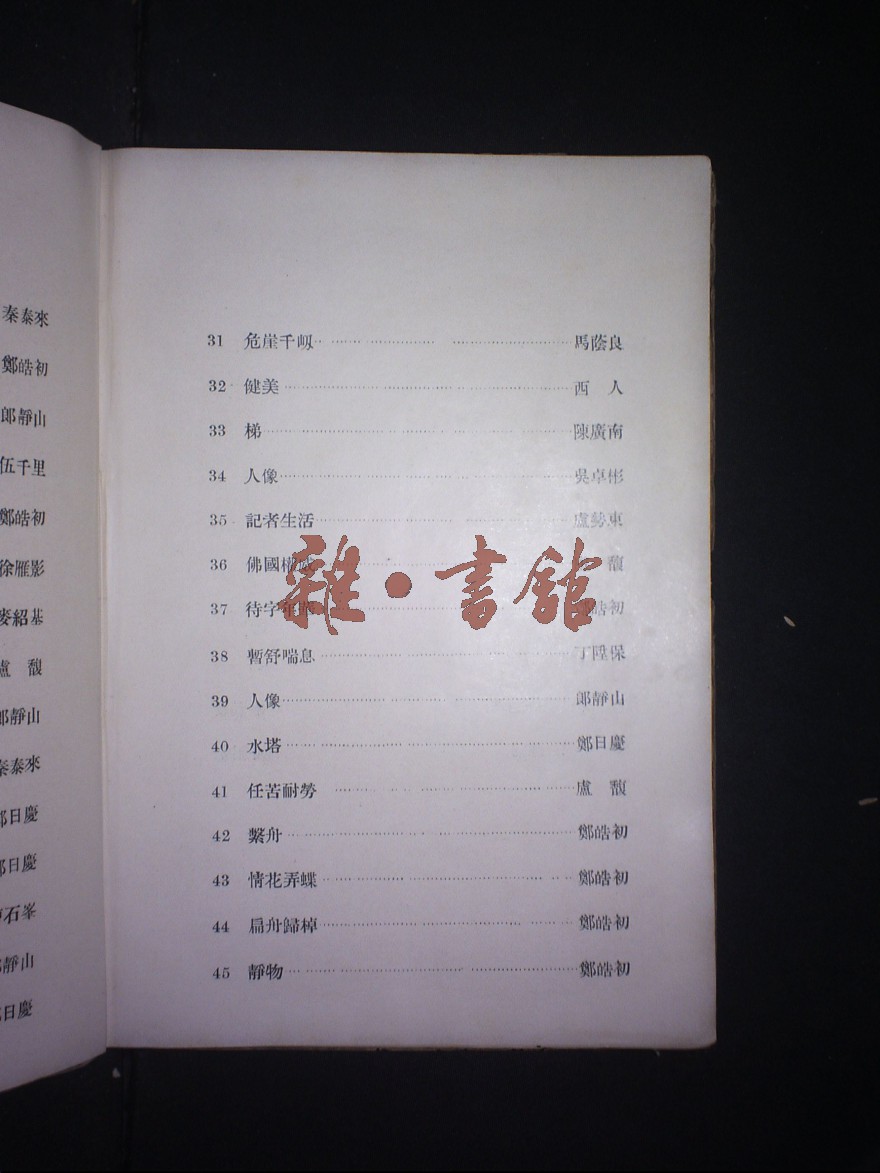 31 危崖千岅 馬蔭良
32 健美 西 人
33 梯 陳廣南
34 人像 吳卓彬
35 記者生活 盧勢東
36 佛國權威 馥
37 待字 皓初
38 暫舒喘息 丁陞保
39 人像 郎靜山
40 水塔 鄭日慶
41 任苦耐勞 盧 馥
42 繫舟 鄭皓初
43 情花弄蝶 鄭皓初
44 扁舟歸棹 鄭皓初
45 靜物 鄭皓初
秦泰來
鄭皓初
郎靜山
伍千里
鄭皓初
徐雁影
麥紹基
盧 馥
郎靜山
秦泰來
日慶
日慶
石峯
靜山
日慶
雜·書館